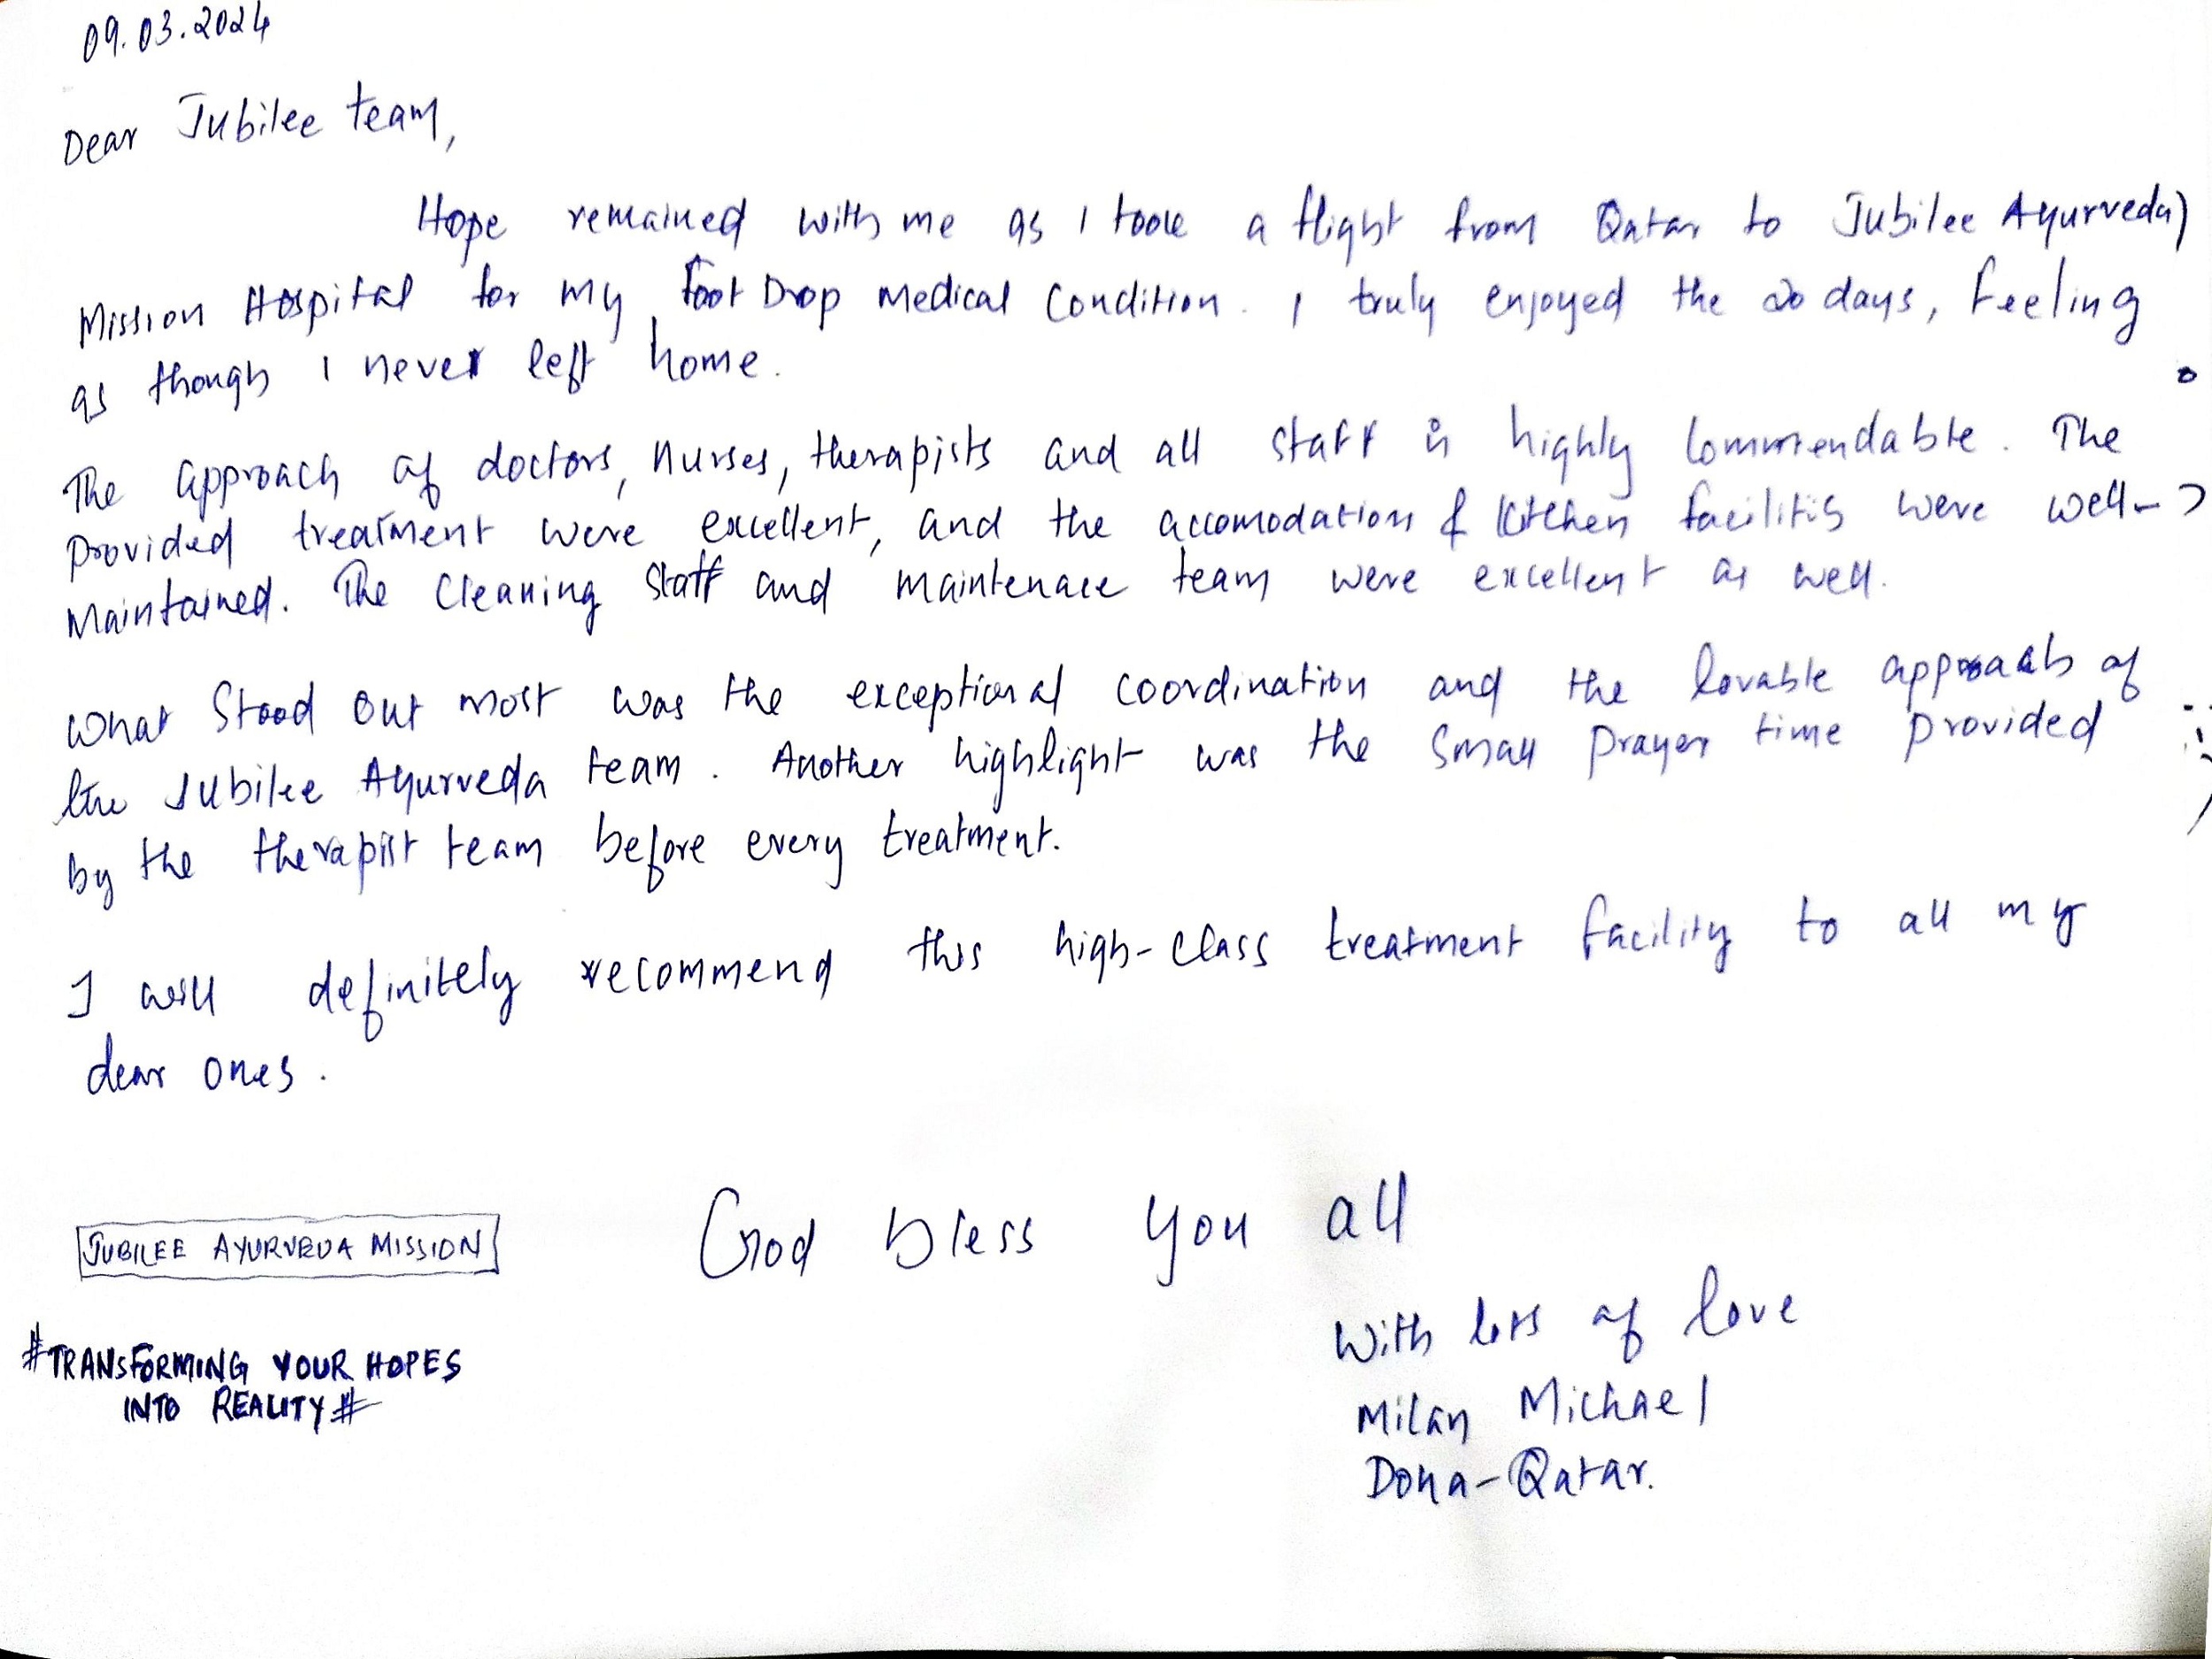 09.03.2024
Dear Jubilee team,
Hope remained with me as I took a flight from Qatar to Jubilee Ayurveda
Mission Hospital for my Foot Drop Medical Condition. I truly enjoyed the 20 days, feeling
as though I never left home.
The approach of doctors, nurses, therapists and all staff is highly Commendable. The
Provided treatment were excellent, and the accomodations & kitchen facilitis were well-
Maintained. The Cleaning Staff and maintenace team were excellent as well.
What Stood out most was the exceptional coordination and the lovable approach of
the Jubilee Ayurveda team. Another highlight was the Small Prayer time provided
by the therapist team before every treatment.
I will definitely recommend this high-class treatment facility to all my
dear ones.
God bless you all
JUBILEE AYURVEDA MISSION
With lots of love
#TRANSFORMING YOUR HOPES
INTO REALITY#
Milan Michael
Doha-Qatar.